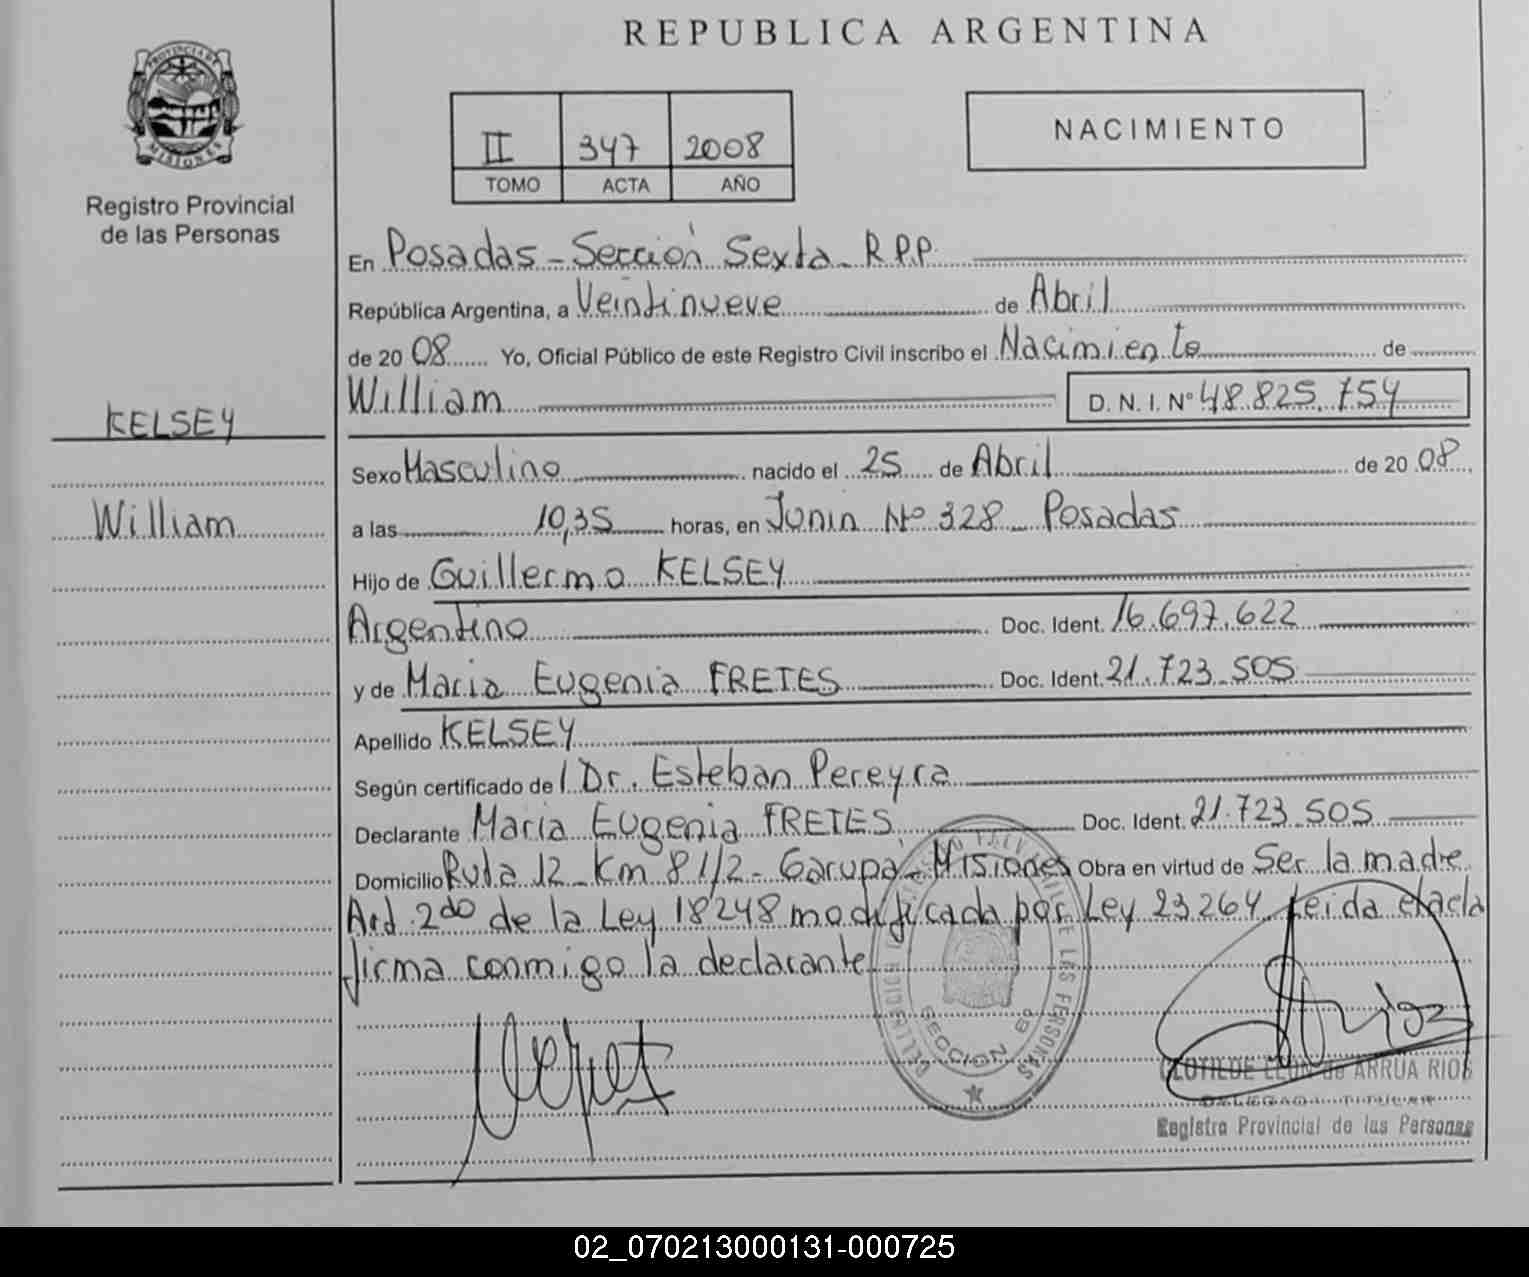 REPUBLICA ARGENTINA
PROVINCIA DE
MISIONES
Registro Provincial
de las Personas
II 347 2008
TOMO ACTA AÑO
NACIMIENTO
En Posadas - Sección Sexta - R.P.P.
República Argentina, a Veintinueve de Abril
de 20 08 Yo, Oficial Público de este Registro Civil inscribo el Nacimiento de
William D. N. I. N° 48.825.754
KELSEY
William
Sexo Masculino nacido el 25 de Abril de 20 08
a las 10,35 horas, en Junin Nº 328 - Posadas
Hijo de Guillermo KELSEY
Argentino Doc. Ident. 16.697.622
y de Maria Eugenia FRETES Doc. Ident. 21.723.505
Apellido KELSEY
Según certificado del Dr. Esteban Pereyra
Declarante Maria Eugenia FRETES Doc. Ident. 21.723.505
Domicilio Ruta 12 - Km 8 1/2 - Garupá - Misiones Obra en virtud de Ser la madre
Art. 2do de la Ley 18248 modificada por Ley 23264. Leida el acta
firma conmigo la declarante
DE LAS PERSONAS
SECCION 6º
CLOTILDE LEON de ARRUA RIOS
DELEGADA TITULAR
Registro Provincial de las Personas
02_070213000131-000725